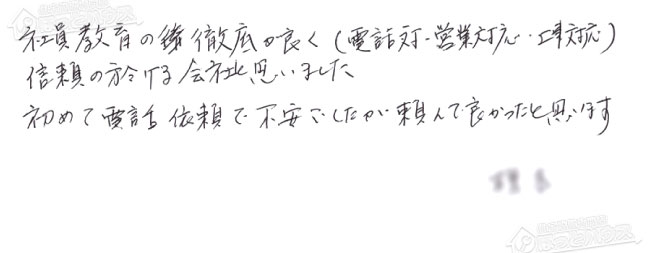 社員教育の徹底が良く(電話対・営業対応・工事対応)
信頼の於ける会社と思いました
初めて電話依頼で不安でしたが頼んで良かったと思います